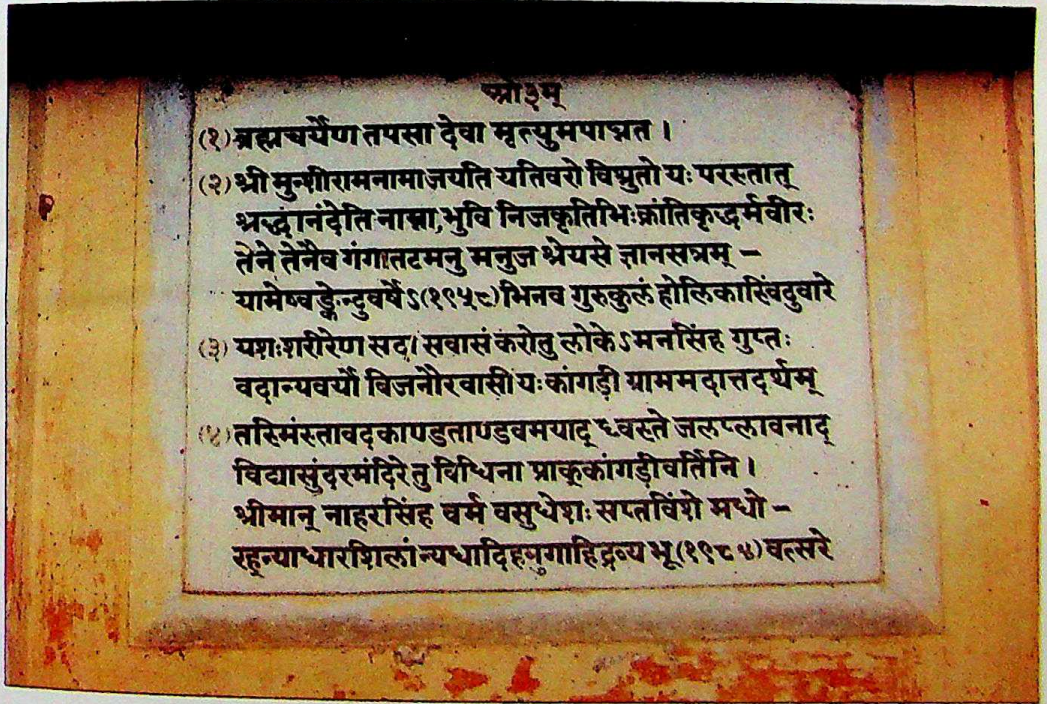 ओ३म्
(१) ब्रह्मचर्येण तपसा देवा मृत्युमपाघ्नत ।
(२) श्री मुन्शीरामनामा जयति यतिवरो विश्रुतो यः परस्तात्
श्रद्धानंदेति नाम्ना, भुवि निजकृतिभिः क्रांतिकृद्धर्मवीरः
तेने तेनैव गंगातटमनु मनुज श्रेयसे ज्ञानसत्रम् –
यामेष्वङ्केन्दुवर्षेऽ(१९५८) भिनव गुरुकुलं होलिकास्विंदुवारे
(३) यशःशरीरेण सदा सवासं करोतु लोकेऽमनसिंह गुप्तः
वदान्यवर्यो बिजनौरवासी यः कांगड़ी ग्राममदात्तदर्थम्
(४) तस्मिंस्तावदकाण्डताण्डवमयाद् ध्वस्ते जलप्लावनाद्
विद्यासुंदरमंदिरे तु विधिना प्राक्कांगड़ीवर्तिनि ।
श्रीमान् नाहरसिंह वर्म वसुधेशः सप्तविंशे मधो –
रह्न्याधारशिलां न्यधादिह युगाहिद्रव्य भू (१९८४) वत्सरे